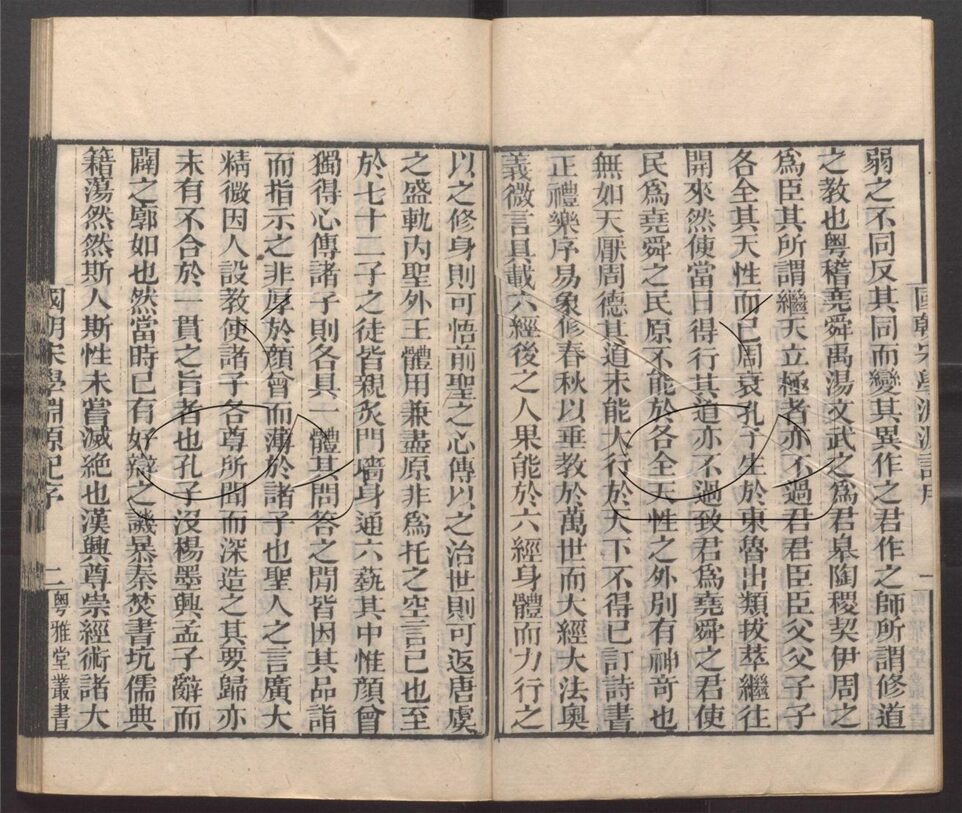 弱之不同反其同而變其異作之君作之師所謂修道
之教也粤稽堯舜禹湯文武之爲君臯陶稷契伊周之
爲臣其所謂繼天立極者亦不過君君臣臣父父子子
各全其天性而已周衰孔子生於東魯出類拔萃繼往
開來然使當日得行其道亦不過致君爲堯舜之君使
民爲堯舜之民原不能於各全天性之外別有神奇也
無如天厭周德其道未能大行於天下不得已訂詩書
正禮樂序易象修春秋以垂教於萬世而大經大法奧
義微言具載六經後之人果能於六經身體而力行之
以之修身則可悟前聖之心傳以之治世則可返唐虞
之盛軌內聖外王體用兼盡原非爲托之空言已也至
於七十二子之徒皆親炙門墻身通六藝其中惟顏曾
獨得心傳諸子則各具一體其問答之閒皆因其品詣
而指示之非厚於顏曾而薄於諸子也聖人之言廣大
精微因人設教使諸子各尊所聞而深造之其要歸亦
未有不合於一貫之旨者也孔子沒楊墨興孟子辭而
闢之廓如也然當時已有好辯之譏暴秦焚書坑儒典
籍蕩然然斯人斯性未嘗滅絶也漢興尊崇經術諸大
國朝宋學淵源記序
二
粤雅堂叢書